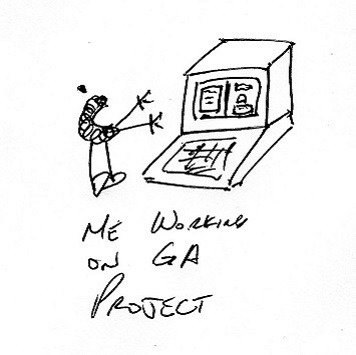 ME WORKING
ON GA
PROJECT